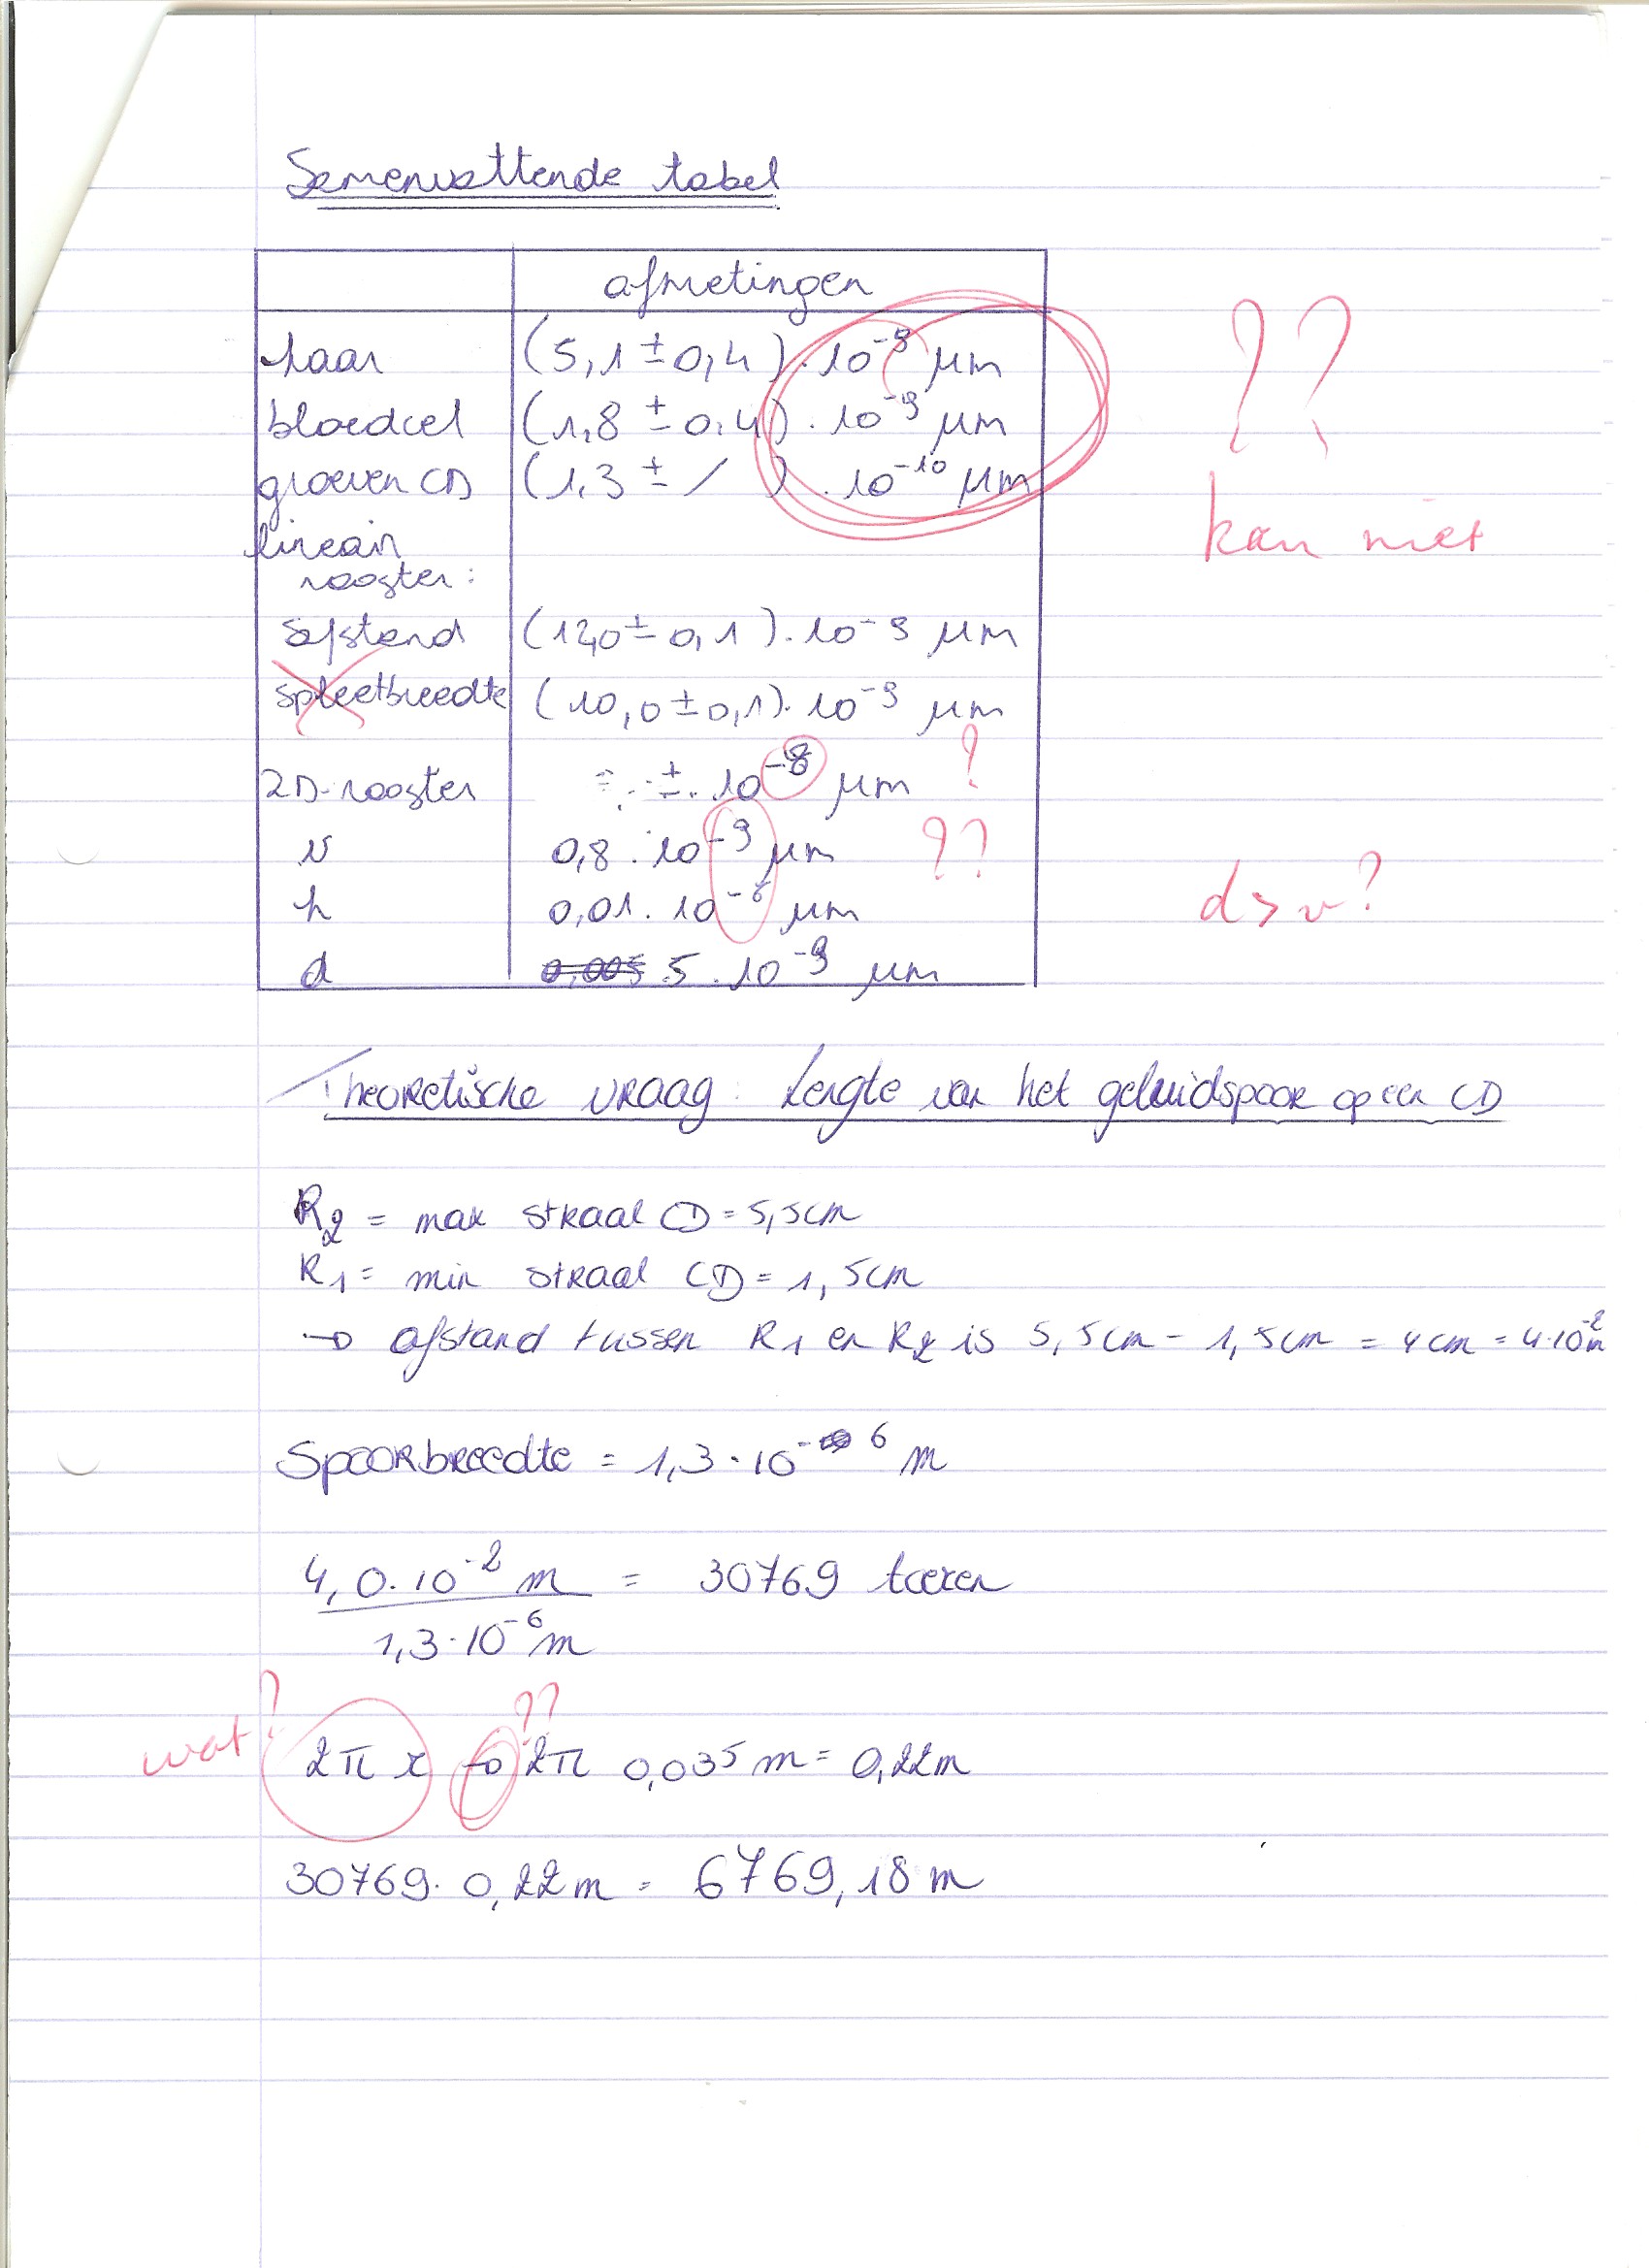 Samenvattende tabel
afmetingen
haar (5,1 ± 0,4) . 10⁻⁸ μm ??
bloedcel (1,8 ± 0,4) . 10⁻⁹ μm
groeven CD (1,3 ± / ) . 10⁻¹⁰ μm kan niet
lineair
rooster:
afstand (120 ± 0,1) . 10⁻⁹ μm
spleetbreedte (10,0 ± 0,1) . 10⁻⁹ μm
2D-rooster ± . 10⁻⁸ μm ?
v 0,8 . 10⁻⁹ μm ??
h 0,01 . 10⁻⁶ μm d > v ?
d 0,005 5 . 10⁻⁹ μm
Theoretische vraag : Lengte van het geluidspoor op een CD
R₂ = max straal CD = 5,5cm
R₁ = min straal CD = 1,5cm
→ afstand tussen R₁ en R₂ is 5,5cm - 1,5cm = 4cm = 4·10⁻²m
Spoorbreedte = 1,3 · 10⁻⁶ m
4,0 . 10⁻² m = 30769 toeren
1,3 · 10⁻⁶ m
wat? 2π r → ?? 2π 0,035 m = 0,22m
30769 · 0,22m = 6769,18 m